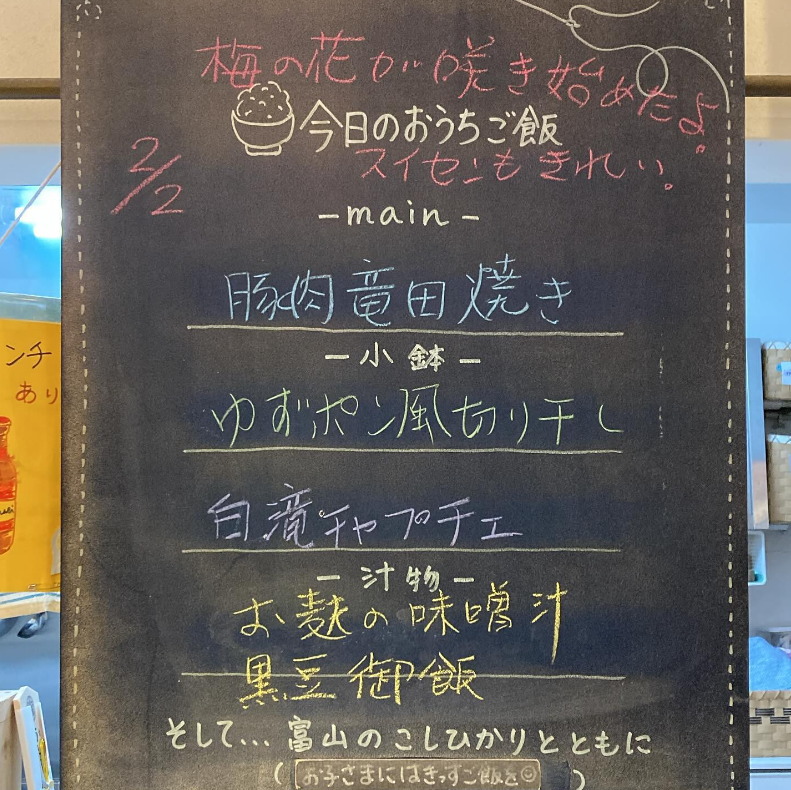 梅の花が咲き始めたよ。
今日のおうちご飯
スイセンもきれい。
2/2
-main-
豚肉竜田焼き
-小鉢-
ゆずポン風切り干し
白滝チャプチェ
-汁物-
お麩の味噌汁
黒豆御飯
そして... 富山のこしひかりとともに
(お子さまにはきっずご飯を☺)
ンチ
あり